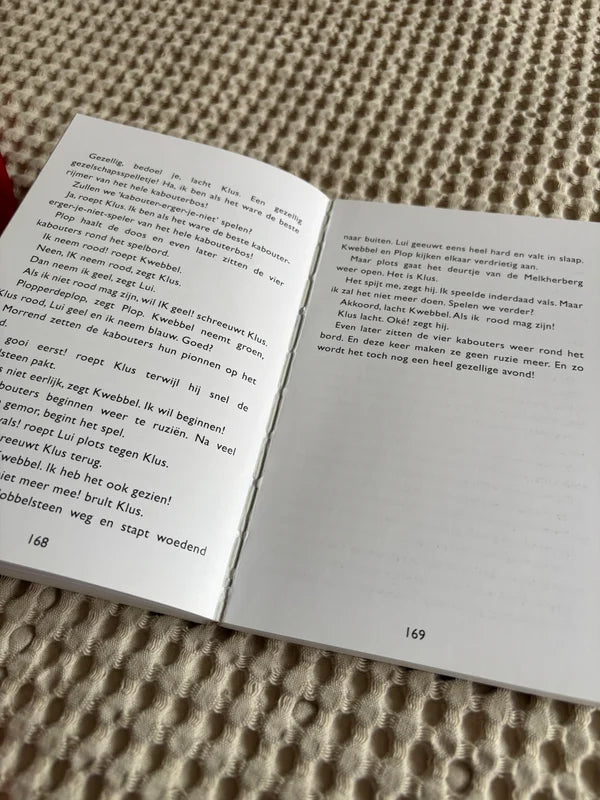 Gezellig, bedoel je, lacht Klus. Een gezellig
gezelschapsspelletje! Ha, ik ben als het ware de beste
rijmer van het hele kabouterbos!
Zullen we 'kabouter-erger-je-niet' spelen?
Ja, roept Klus. Ik ben als het ware de beste kabouter-
erger-je-niet-speler van het hele kabouterbos!
Plop haalt de doos en even later zitten de vier
kabouters rond het spelbord.
Ik neem rood! roept Kwebbel.
Neen, IK neem rood, zegt Klus.
Dan neem ik geel, zegt Lui.
Als ik niet rood mag zijn, wil IK geel! schreeuwt Klus.
Plopperdeplop, zegt Plop. Kwebbel neemt groen,
Klus rood, Lui geel en ik neem blauw. Goed?
Morrend zetten de kabouters hun pionnen op het
d.
gooi eerst! roept Klus terwijl hij snel de
lsteen pakt.
s niet eerlijk, zegt Kwebbel. Ik wil beginnen!
bouters beginnen weer te ruziën. Na veel
n gemor, begint het spel.
vals! roept Lui plots tegen Klus.
reeuwt Klus terug.
Kwebbel. Ik heb het ook gezien!
niet meer mee! brult Klus.
obbelsteen weg en stapt woedend
168
naar buiten. Lui geeuwt eens heel hard en valt in slaap.
Kwebbel en Plop kijken elkaar verdrietig aan.
Maar plots gaat het deurtje van de Melkherberg
weer open. Het is Klus.
Het spijt me, zegt hij. Ik speelde inderdaad vals. Maar
ik zal het niet meer doen. Spelen we verder?
Akkoord, lacht Kwebbel. Als ik rood mag zijn!
Klus lacht. Oké! zegt hij.
Even later zitten de vier kabouters weer rond het
bord. En deze keer maken ze geen ruzie meer. En zo
wordt het toch nog een heel gezellige avond!
169